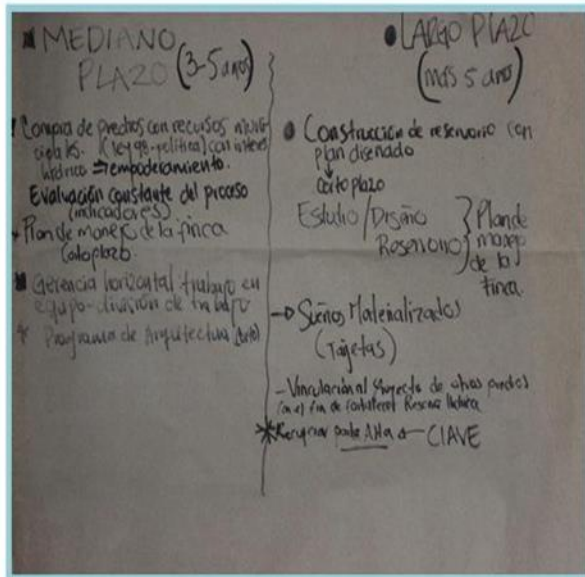 MEDIANO
PLAZO (3-5 años)
Compra de predios con recursos munici-
cipales. (ley 99-política) con interés
hídrico ⇒ empoderamiento.
Evaluación constante del proceso
(indicadores)
Plan de manejo de la finca
Corto plazo.
Gerencia horizontal trabajo en
equipo-división de trabajo
* Programa de Arquitectura (corto)
LARGO PLAZO
(más 5 años)
Construcción de reservorio con
plan diseñado
↓
corto plazo
Estudio / Diseño
Reservorio
} Plan de
manejo
de la
finca.
→ Sueños Materializados
(Tarjetas)
- Vinculación al proyecto de otros predios
con el fin de fortalecer Reserva hídrica
* parte Alta ← CLAVE